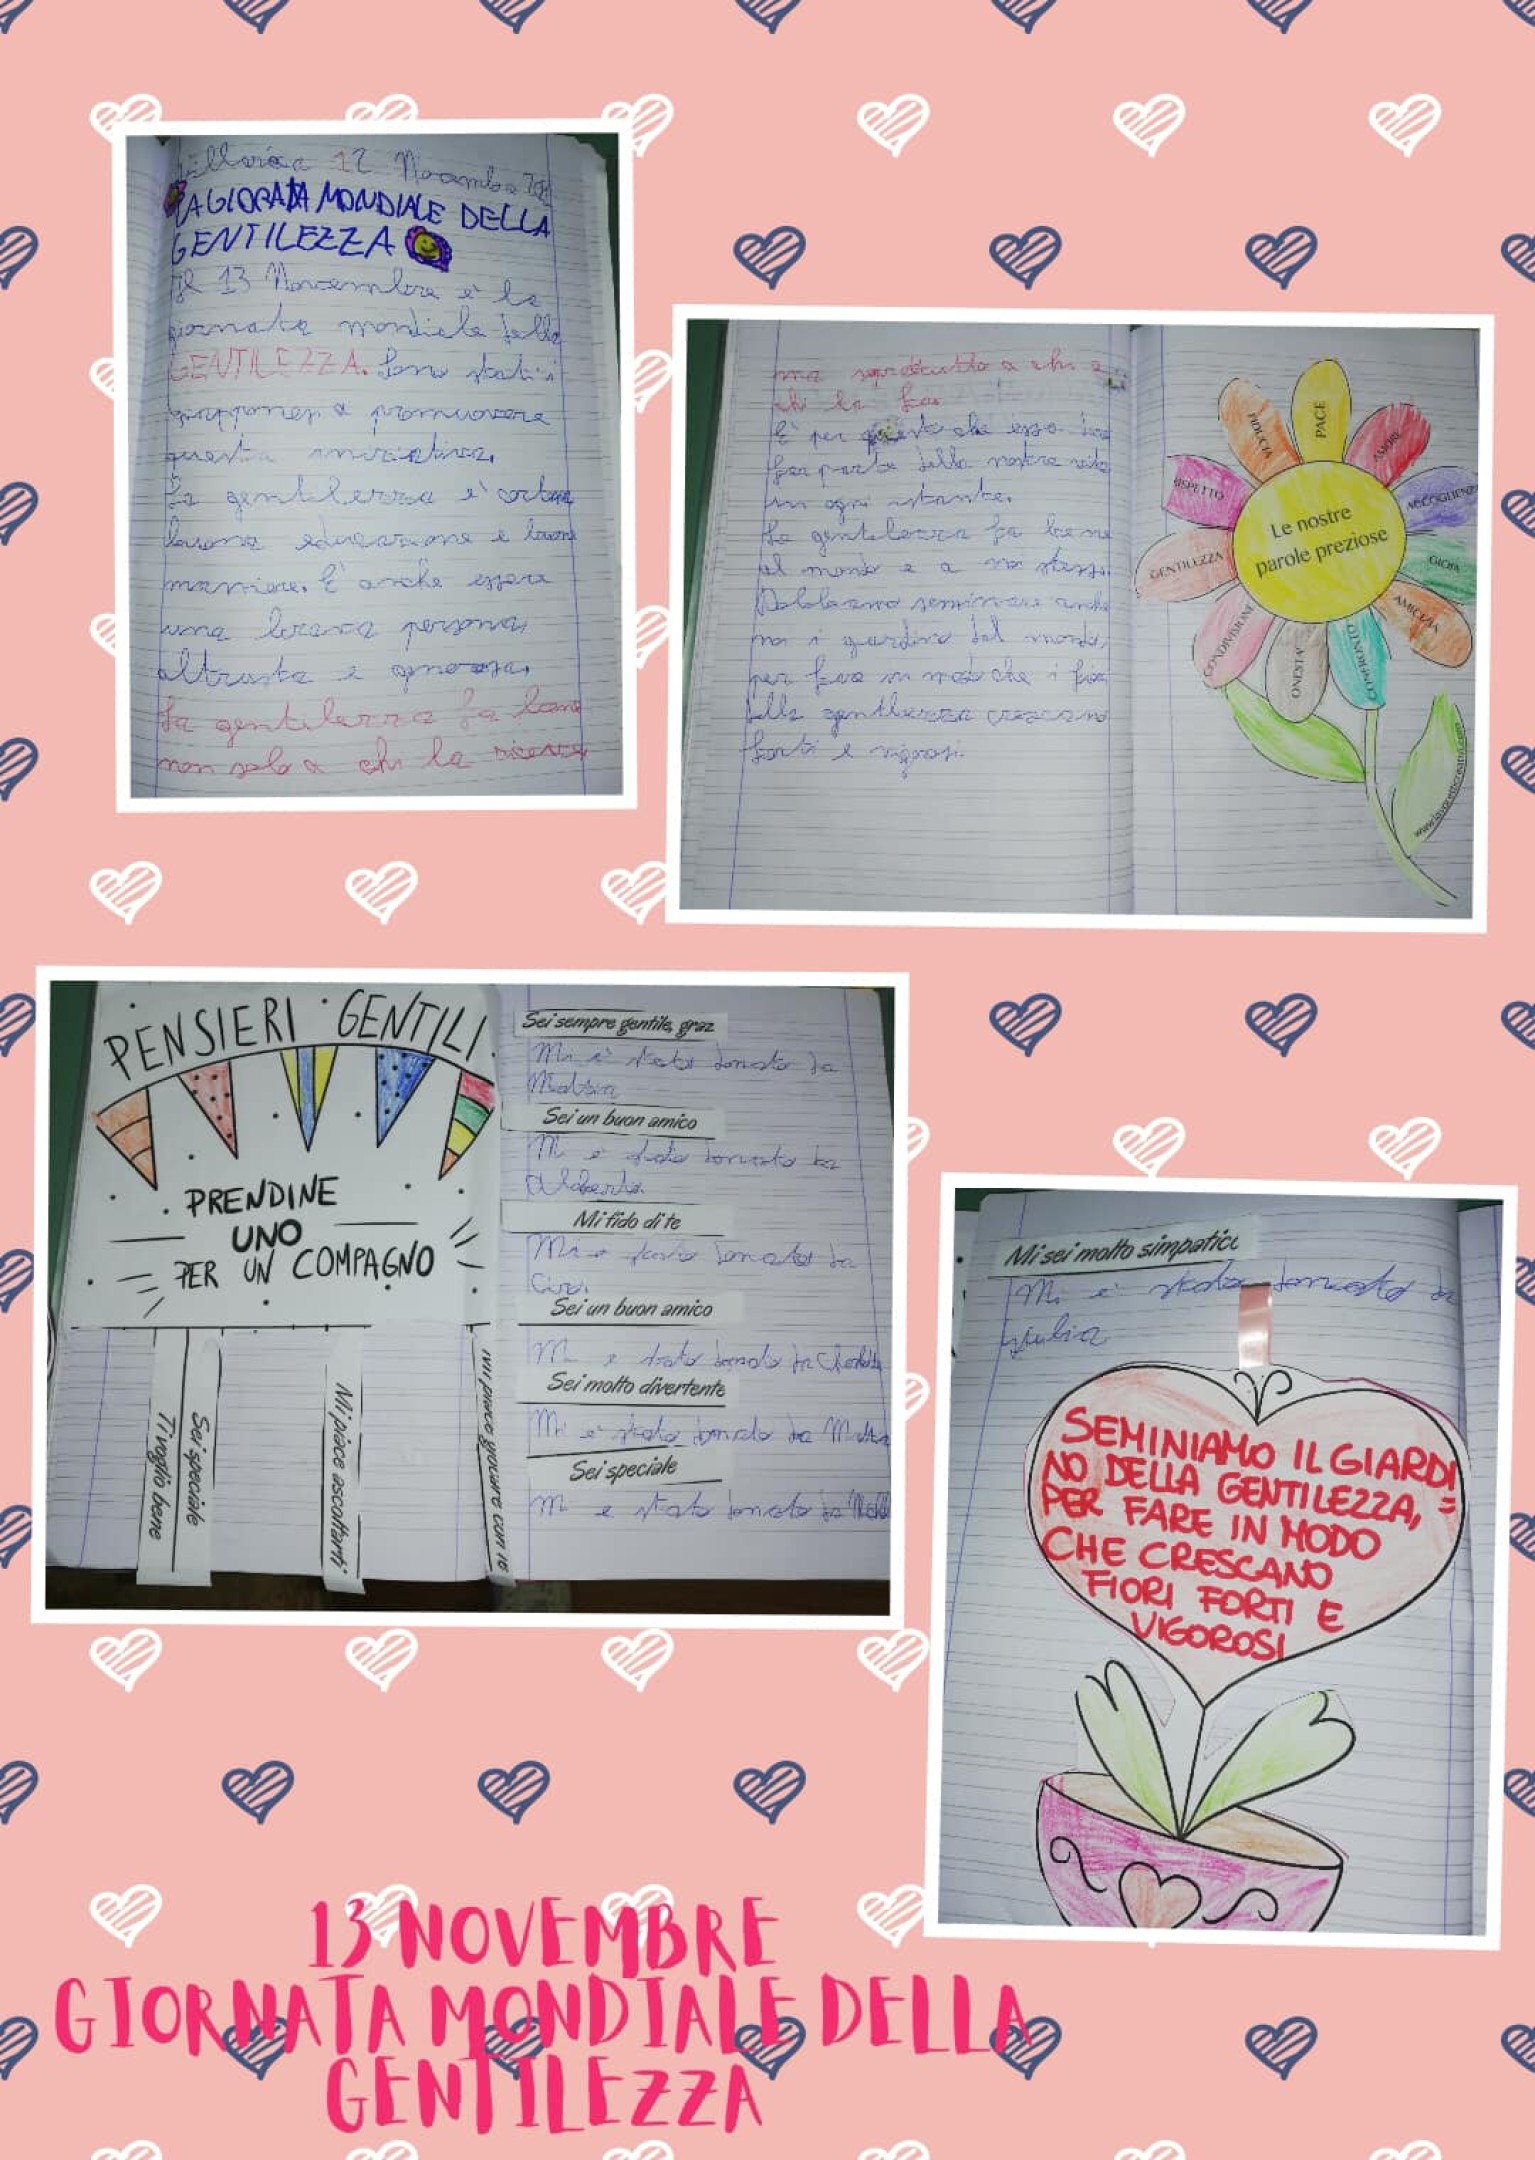 12 Novembre
LA GIORATA MONDIALE DELLA
GENTILEZZA
Il 13 Novembre è la
giornata mondiale della
GENTILEZZA. Sono stati i
giapponesi a promuovere
questa iniziativa.
La gentilezza è
buona educazione e buone
maniere. È anche essere
una brava persona,
altruista e
La gentilezza fa bene
non solo a chi la riceve
ma a chi
chi la fa.
È per questo che essa
far parte della nostra vita
in ogni istante.
La gentilezza fa bene
al mondo e a noi stessi.
Dobbiamo seminare anche
noi i giardini del mondo,
per fare in modo che i fiori
della gentilezza crescano
forti e vigorosi.
Le nostre
parole preziose
PACE
AMORE
ACCOGLIENZA
GIOIA
AMICIZIA
CONFRONTO
ONESTA'
CONDIVISIONE
GENTILEZZA
RISPETTO
FIDUCIA
www.lavoretticreativi.com
PENSIERI GENTILI
PRENDINE
UNO
PER UN COMPAGNO
Ti voglio bene
Sei speciale
Mi piace ascoltarti
Mi piace giocare con te
Sei sempre gentile, graz
Mi è stato donato da
Sei un buon amico
Mi è stato donato da
Mi fido di te
Mi è stato donato da
Sei un buon amico
Mi è stato donato da
Sei molto divertente
Mi è stato donato da
Sei speciale
Mi è stato donato da
Mi sei molto simpatic
Mi è stato donato da
giulia
SEMINIAMO IL GIARDI
NO DELLA GENTILEZZA, =
PER FARE IN MODO
CHE CRESCANO
FIORI FORTI E
VIGOROSI
13 NOVEMBRE
GIORNATA MONDIALE DELLA
GENTILEZZA